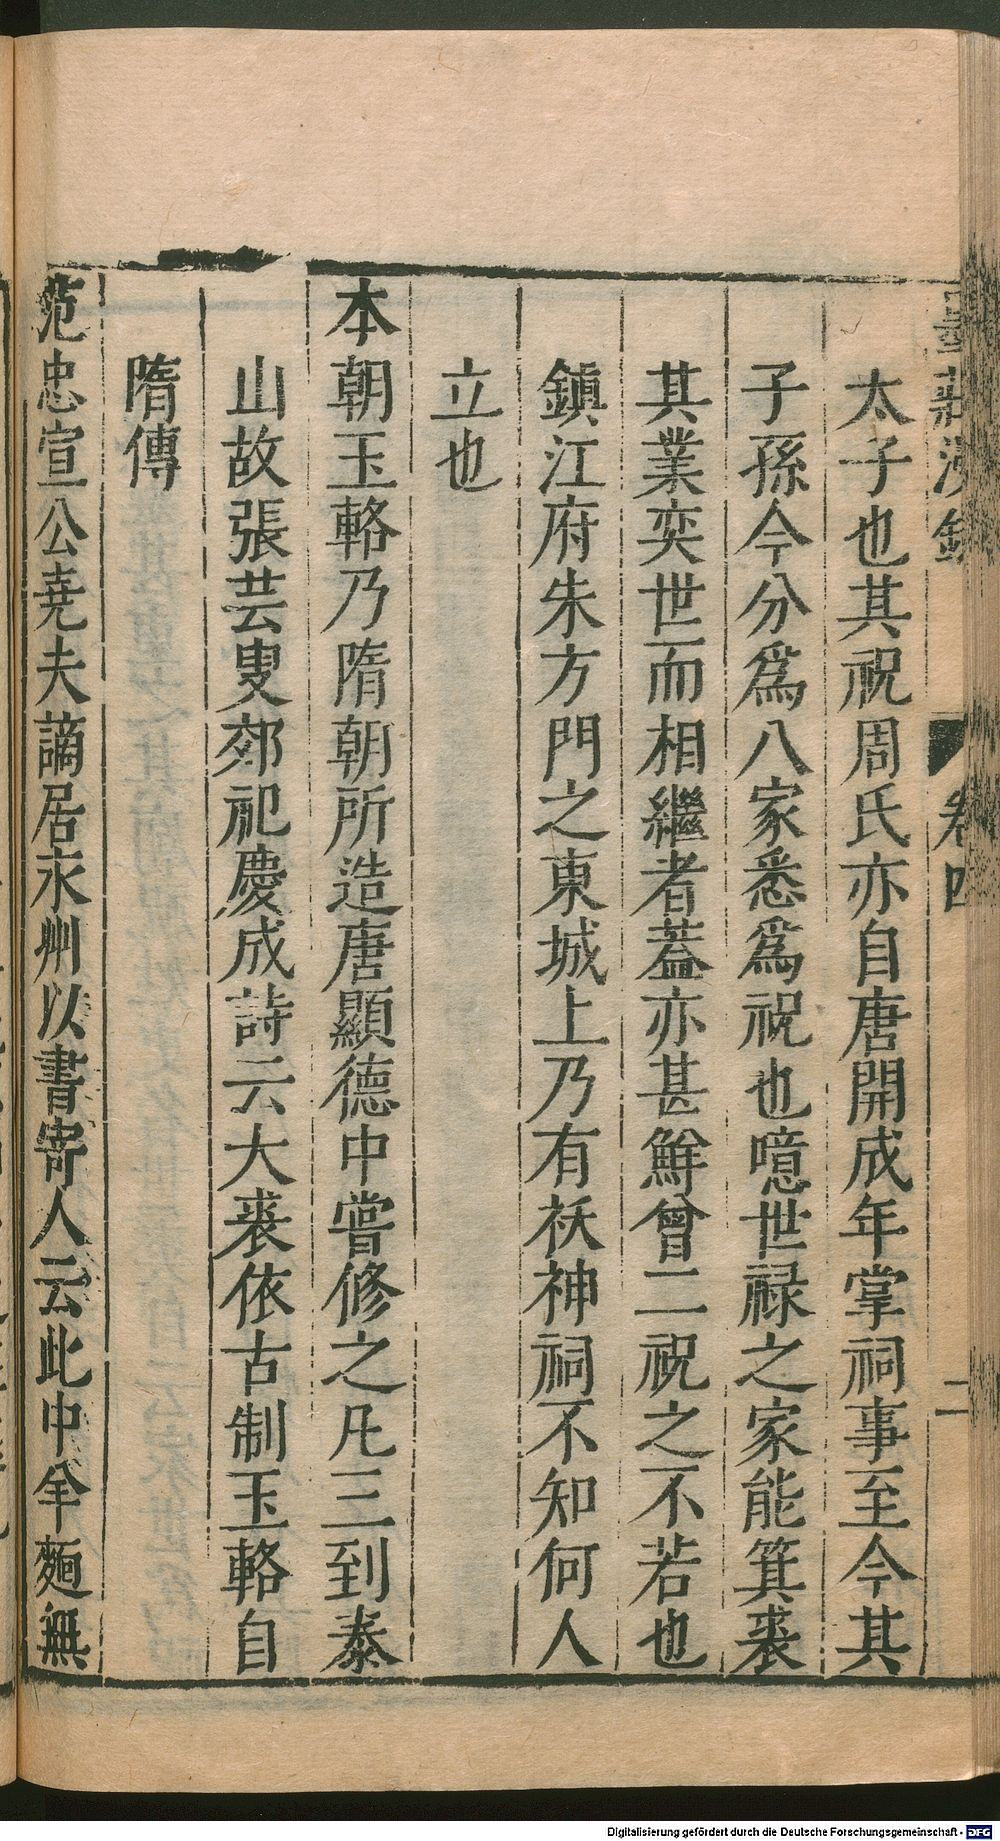 墨莊漫錄 卷四 二
太子也其祝周氏亦自唐開成年掌祠事至今其
子孫今分爲八家悉爲祝也噫世禄之家能箕裘
其業奕世而相繼者蓋亦甚鮮曾二祝之不若也
鎮江府朱方門之東城上乃有祅神祠不知何人
立也
本朝玉輅乃隋朝所造唐顯德中嘗修之凡三到泰
山故張芸叟郊祀慶成詩云大裘依古制玉輅自
隋傳
范忠宣公堯夫謫居永州以書寄人云此中羊麵無
Digitalisierung gefördert durch die Deutsche Forschungsgemeinschaft - DFG